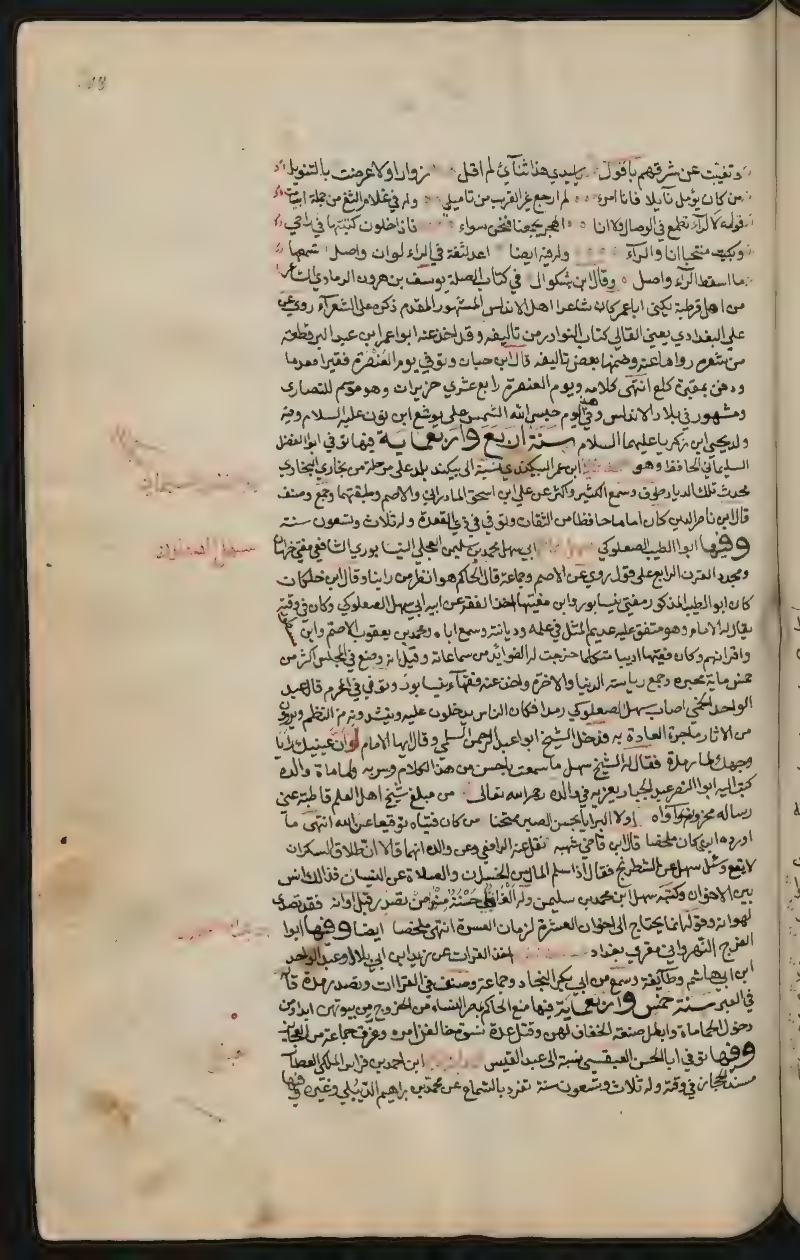 وتفيت عن شرقهم بأقول سيدي هذا ثنائي لم اقل زوارا ولا عرضت بالتنويل
من كان يؤمل نايلا فانا امرؤ لم ارجع غير القرب من تاميلي وله في غلام الثغ من جملة ابيات
قوله لا الراء تطمع في الوصال ولا انا الهجر يجمعنا فنحن سواء فاذا خلوت كتبتها في راحتي
وبكيت منتحبا انا والراء وله فيه ايضا اعد لثغة في الراء لو ان واصل تسمعها
ما اسقط الراء واصل وقال ابن بشكوال في كتاب الصلة يوسف بن هرون الرمادي الشاعر
من اهل قرطبة يكنى ابا عمر كان شاعرا اهل الاندلس المشهور المقدم ذكره على الشعراء روى عن
علي البغدادي يعني القالي كتاب النوادر من تاليفه وقد اخذ عنه ابو عمر ابن عبد البر قطعة
من شعره رواها عنه وضمنها بعض تاليفه قال ابن حيان وتوفي يوم العنصرة فقيرا معدما
ودفن بمقبرة كلع انتهى كلامه ويوم العنصرة رابع عشري حزيران وهو موسم للنصارى
ومشهور في بلاد الاندلس وفي هذا اليوم حبس الله الشمس على يوشع ابن نون عليه السلام وفيه
ولد يحيى ابن زكريا عليهما السلام سنة اربع واربعماية فيها توفي ابو الفضل
السليماني الحافظ وهو ابن عمر البيكندي نسبة الى بيكند بلد على مرحلة من بخارى البخاري
محدث تلك الديار طوف وسمع الكثير واكثر عن علي ابن اسحق المادراني والاصم وطبقتهما وجمع وصنف
قال ابن ناصر الدين كان اماما حافظا من الثقات وتوفي في ذي القعدة وله ثلاث وتسعون سنة
وفيها ابو الطيب الصعلوكي ابي سهل محمد بن سليمن العجلي النيسابوري الشافعي مفتي خراسان
ومجدد القرن الرابع على قول روى عن الاصم وجماعة قال الحاكم هو انظر من راينا وقال ابن خلكان
كان ابو الطيب المذكور مفتي نيسابور وابن مفتيها اخذ الفقه عن ابيه ابي سهل الصعلوكي وكان في وقته
يقال له الامام وهو متفق عليه عديم المثل في علمه وديانته وسمع اباه ومحمد بن يعقوب الاصم وابن
واقرانهم وكان فقيها اديبا متكلما خرجت له الفوائد من سماعاته وقيل انه وضع في المجلس اكثر من
خمس ماية محبرة وجمع رياسة الدنيا والاخرة واخذ عنه فقهاء نيسابور وتوفي في المحرم قال عبد
الواحد اللخمي اصاب سهل الصعلوكي رمدا فكان الناس يدخلون عليه وينشدونه من النظم ويروون
من الاثار ما جرت العادة به فدخل الشيخ ابو عبد الرحمن السلمي وقال ايها الامام لو ان عينيك رايا
وجهك لما رمدة فقال له الشيخ سهل ما سمعت باحسن من هذا الكلام وسر به ولما ماة والده
كتب اليه ابو النصر عبد الجبار يعزيه في والده رحمه الله تعالى من مبلغ شيخ اهل العلم قاطبة عني
رسالة محزون واواه اولا البرايا بحسن الصبر ممتحنا من كان فتياه توقيعا عن الله انتهى ما
اورده ابن خلكان ملخصا قال ابن قاضي شهبه نقل عنه الرافعي وعن والده انهما قالا ان طلاق السكران
لا يقع وسئل سهل عن الشطرنج فقال اذا سلم المال من الخسران والصلاة عن النسيان فذلك انس
بين الاخوان وكتبه سهل ابن محمد بن سليمن وله الفاظ حسنة منها من تصدر قبل اوانه فقد تصدى
لهوانه وقوله انما يحتاج الى اخوان العشرة لزمان العسرة انتهى ملخصا ايضا وفيها ابو
الفرج النهرواني مقرئ بغداد اخذ القراات عن زيد ابن ابي بلال وعبد الواحد
ابن ابي هاشم وطائفة وسمع من ابي بكر النجاد وجماعة وصنف في القراات وتصدر مدة قاله
في العبر سنة خمس واربعماية فيها منع الحاكم بمصر النساء من الخروج من بيوتهن ابدا ومن
دخول الحمامات وابطل صنعة الخفاف لهن وقتل عدة نسوة خالفن امره وغرق جماعة من العجايز
وفيها توفي ابا الحسن العبقسي نسبة الى عبد القيس ابن احمد بن فراس المكي العطار
مسند الحجاز في وقته وله ثلاث وتسعون سنة تفرد بالسماع عن محمد بن ابراهيم الديبلي وغيره وفيها